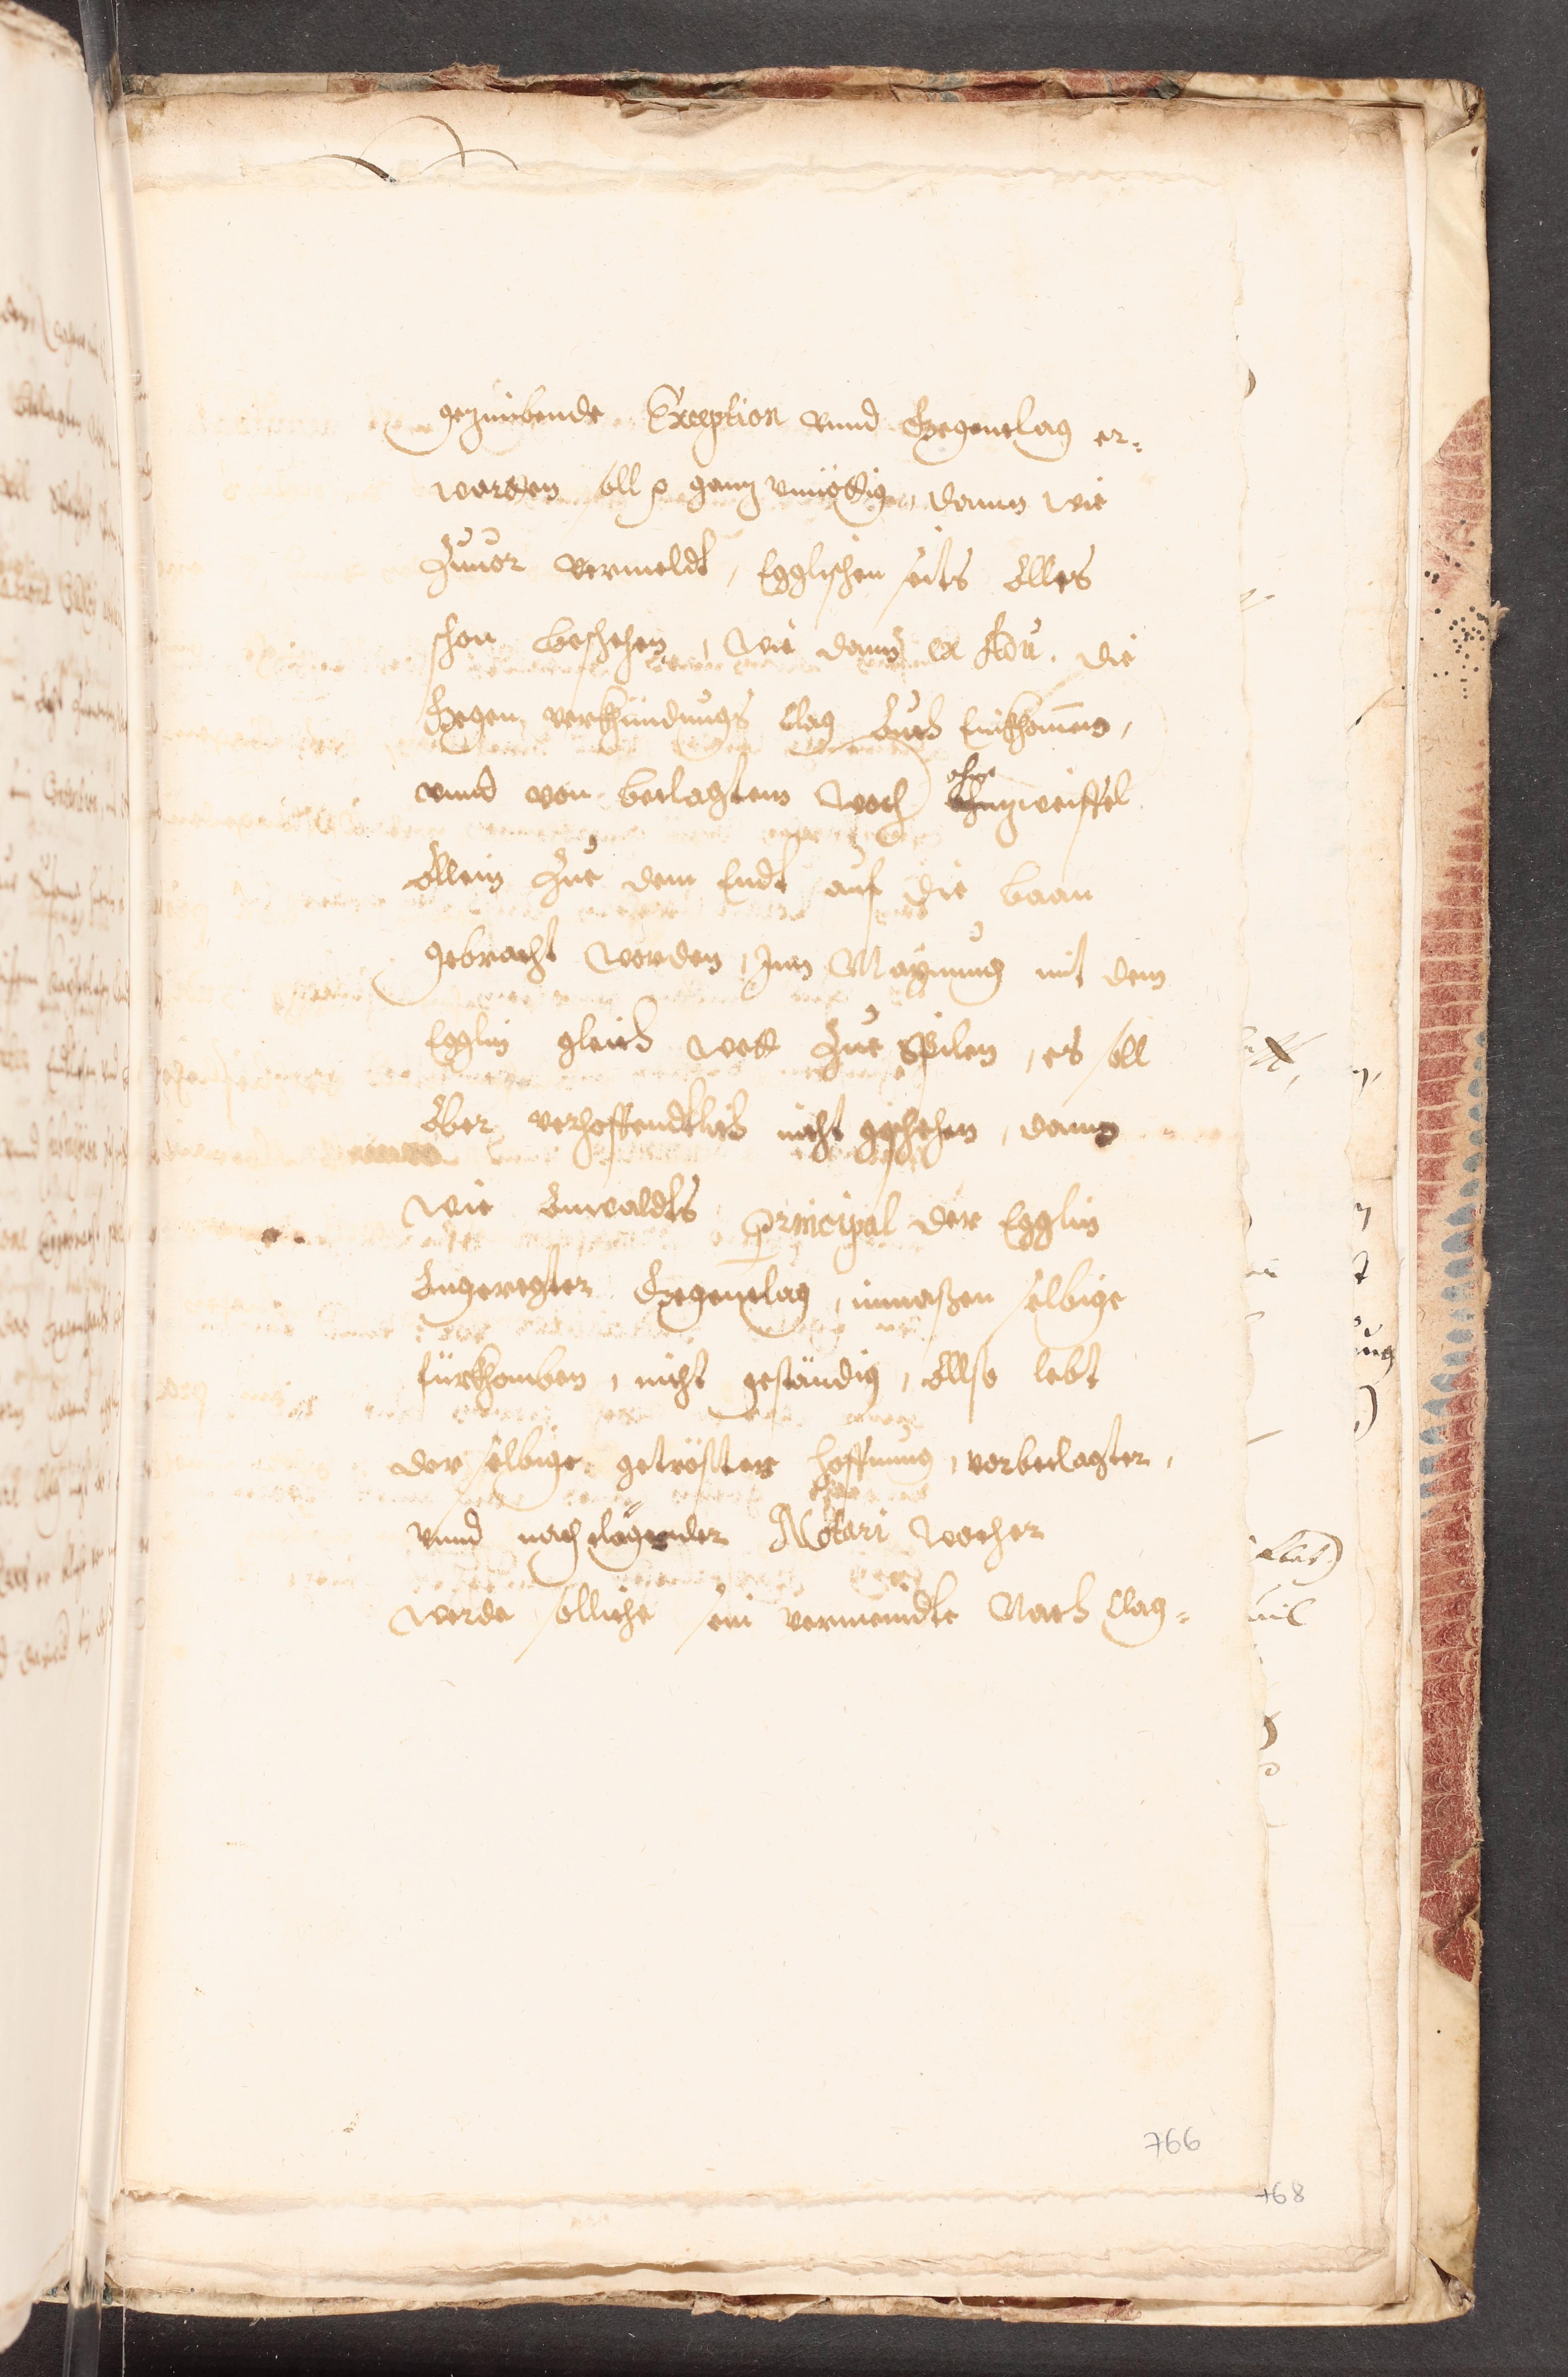 gezimbende Exception vnnd Gegenclag er¬
wartten soll p ganz vnnöttig, dann wie
Zuuor vermeldt, Egglischen seits Alles
schon beschehen, wie dann ex Adu. die
Gegen verkhündungs Clag Auch Einkhomen,
vnnd von beclagtem Woch ohne zweiffel
Allein Zue dem Endt auf die baan
gebracht worden, Inn Maynung mit dem
Egglin gleich wett Zue spilen, es soll
Aber verhoffendtlich nicht geschehen, dann
wie Anwaldts Principal der Egglin
Angeregter Gegenclag, inmaßen selbige
fürkhomben, nicht geständig, Allso lebt
der selbige getröster hoffnung, vorbeclagter,
vnnd nachclagender Notari Wocher
werde solliche sein vermeindte Nach Clag¬
766
768